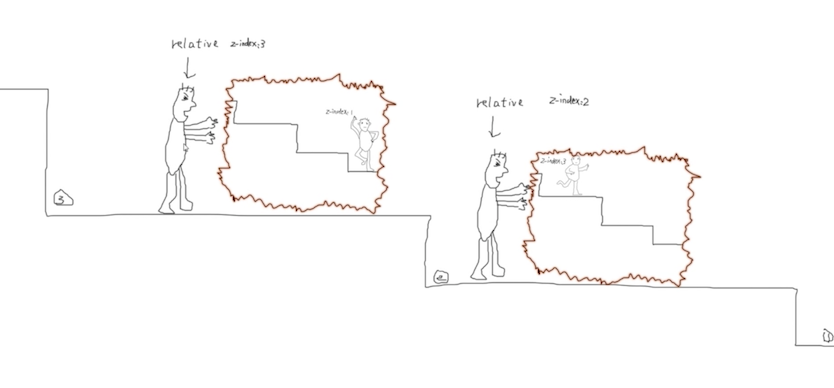 relative z-index:3
z-index:1
relative z-index:2
z-index:3
3
2
1